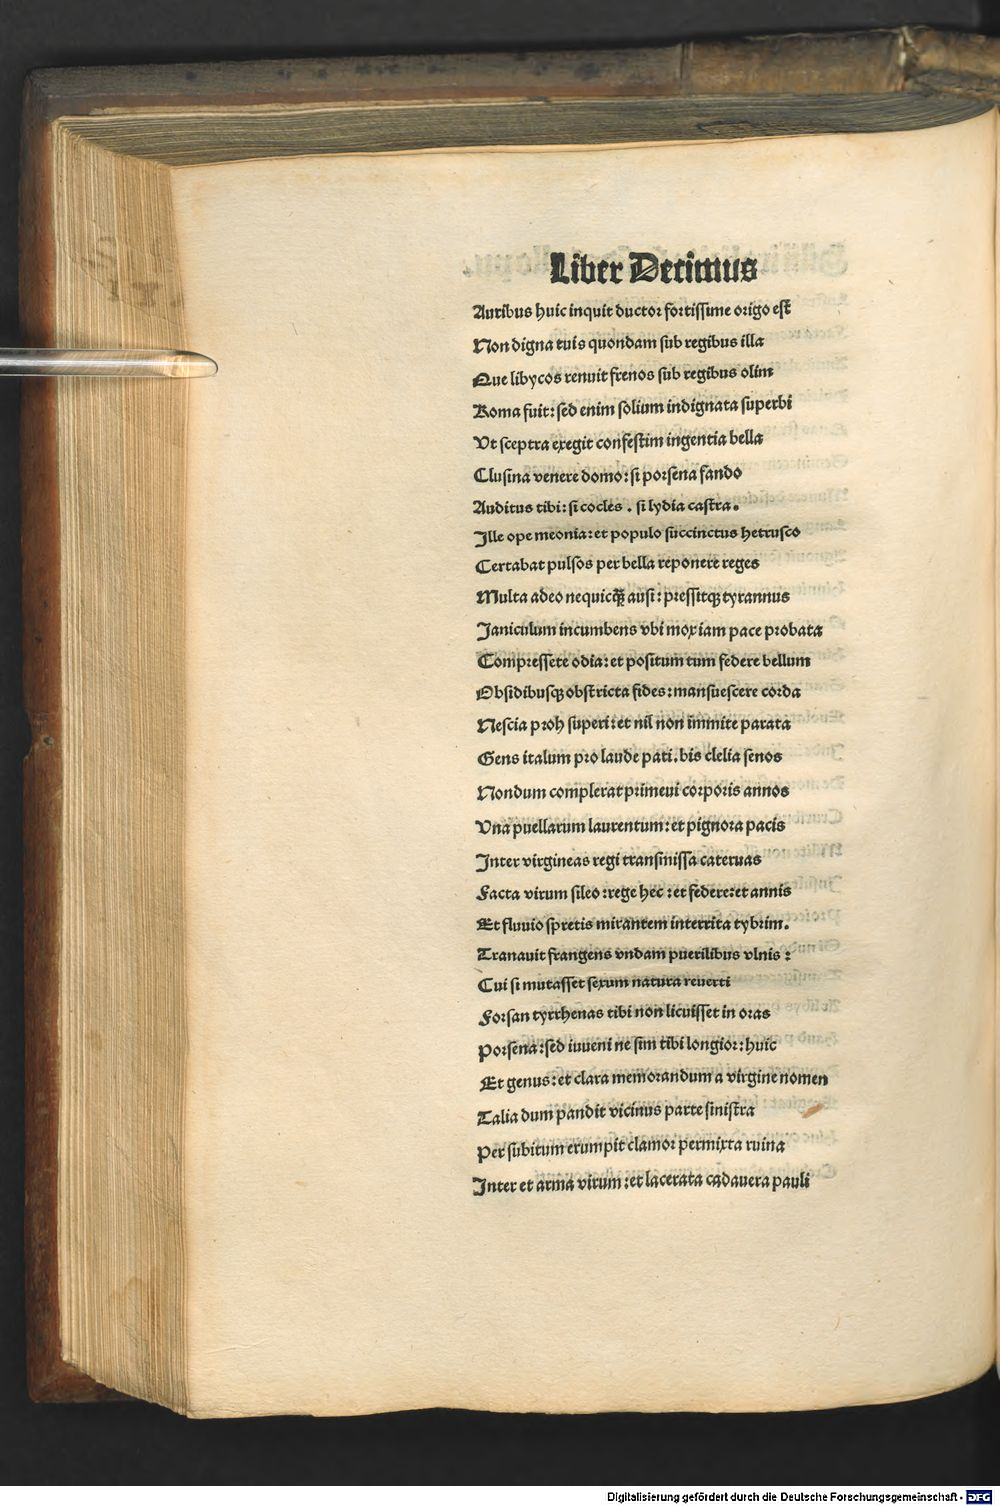 Liber Decimus
Auribus huic inquit ductor fortissime origo est
Non digna tuis quondam sub regibus illa
Que libycos renuit frenos sub regibus olim
Roma fuit: sed enim solium indignata superbi
Vt sceptra exegit confestim ingentia bella
Clusina venere domo: si porsena fando
Auditus tibi: si cocles . si lydia castra.
Ille ope meonia: et populo succinctus hetrusco
Certabat pulsos per bella reponere reges
Multa adeo nequicꝗ̃ ausi: pressitqꝫ tyrannus
Janiculum incumbens vbi mox iam pace probata
Compressere odia: et positum tum federe bellum
Obsidibusqꝫ obstricta fides: mansuescere corda
Nescia proh superi: et nil non immite parata
Gens italum pro laude pati. bis clelia senos
Nondum complerat primeui corporis annos
Vna puellarum laurentum: et pignora pacis
Inter virgineas regi transmissa cateruas
Facta virum sileo: rege hec: et federe: et annis
Et fluuio spretis mirantem interrita tybrim.
Tranauit frangens vndam puerilibus vlnis:
Cui si mutasset sexum natura reuerti
Forsan tyrrhenas tibi non licuisset in oras
Porsena: sed iuueni ne sim tibi longior: huic
Et genus: et clara memorandum a virgine nomen
Talia dum pandit vicinus parte sinistra
Per subitum erumpit clamor permixta ruina
Inter et arma virum: et lacerata cadauera pauli
Digitalisierung gefördert durch die Deutsche Forschungsgemeinschaft - DFG